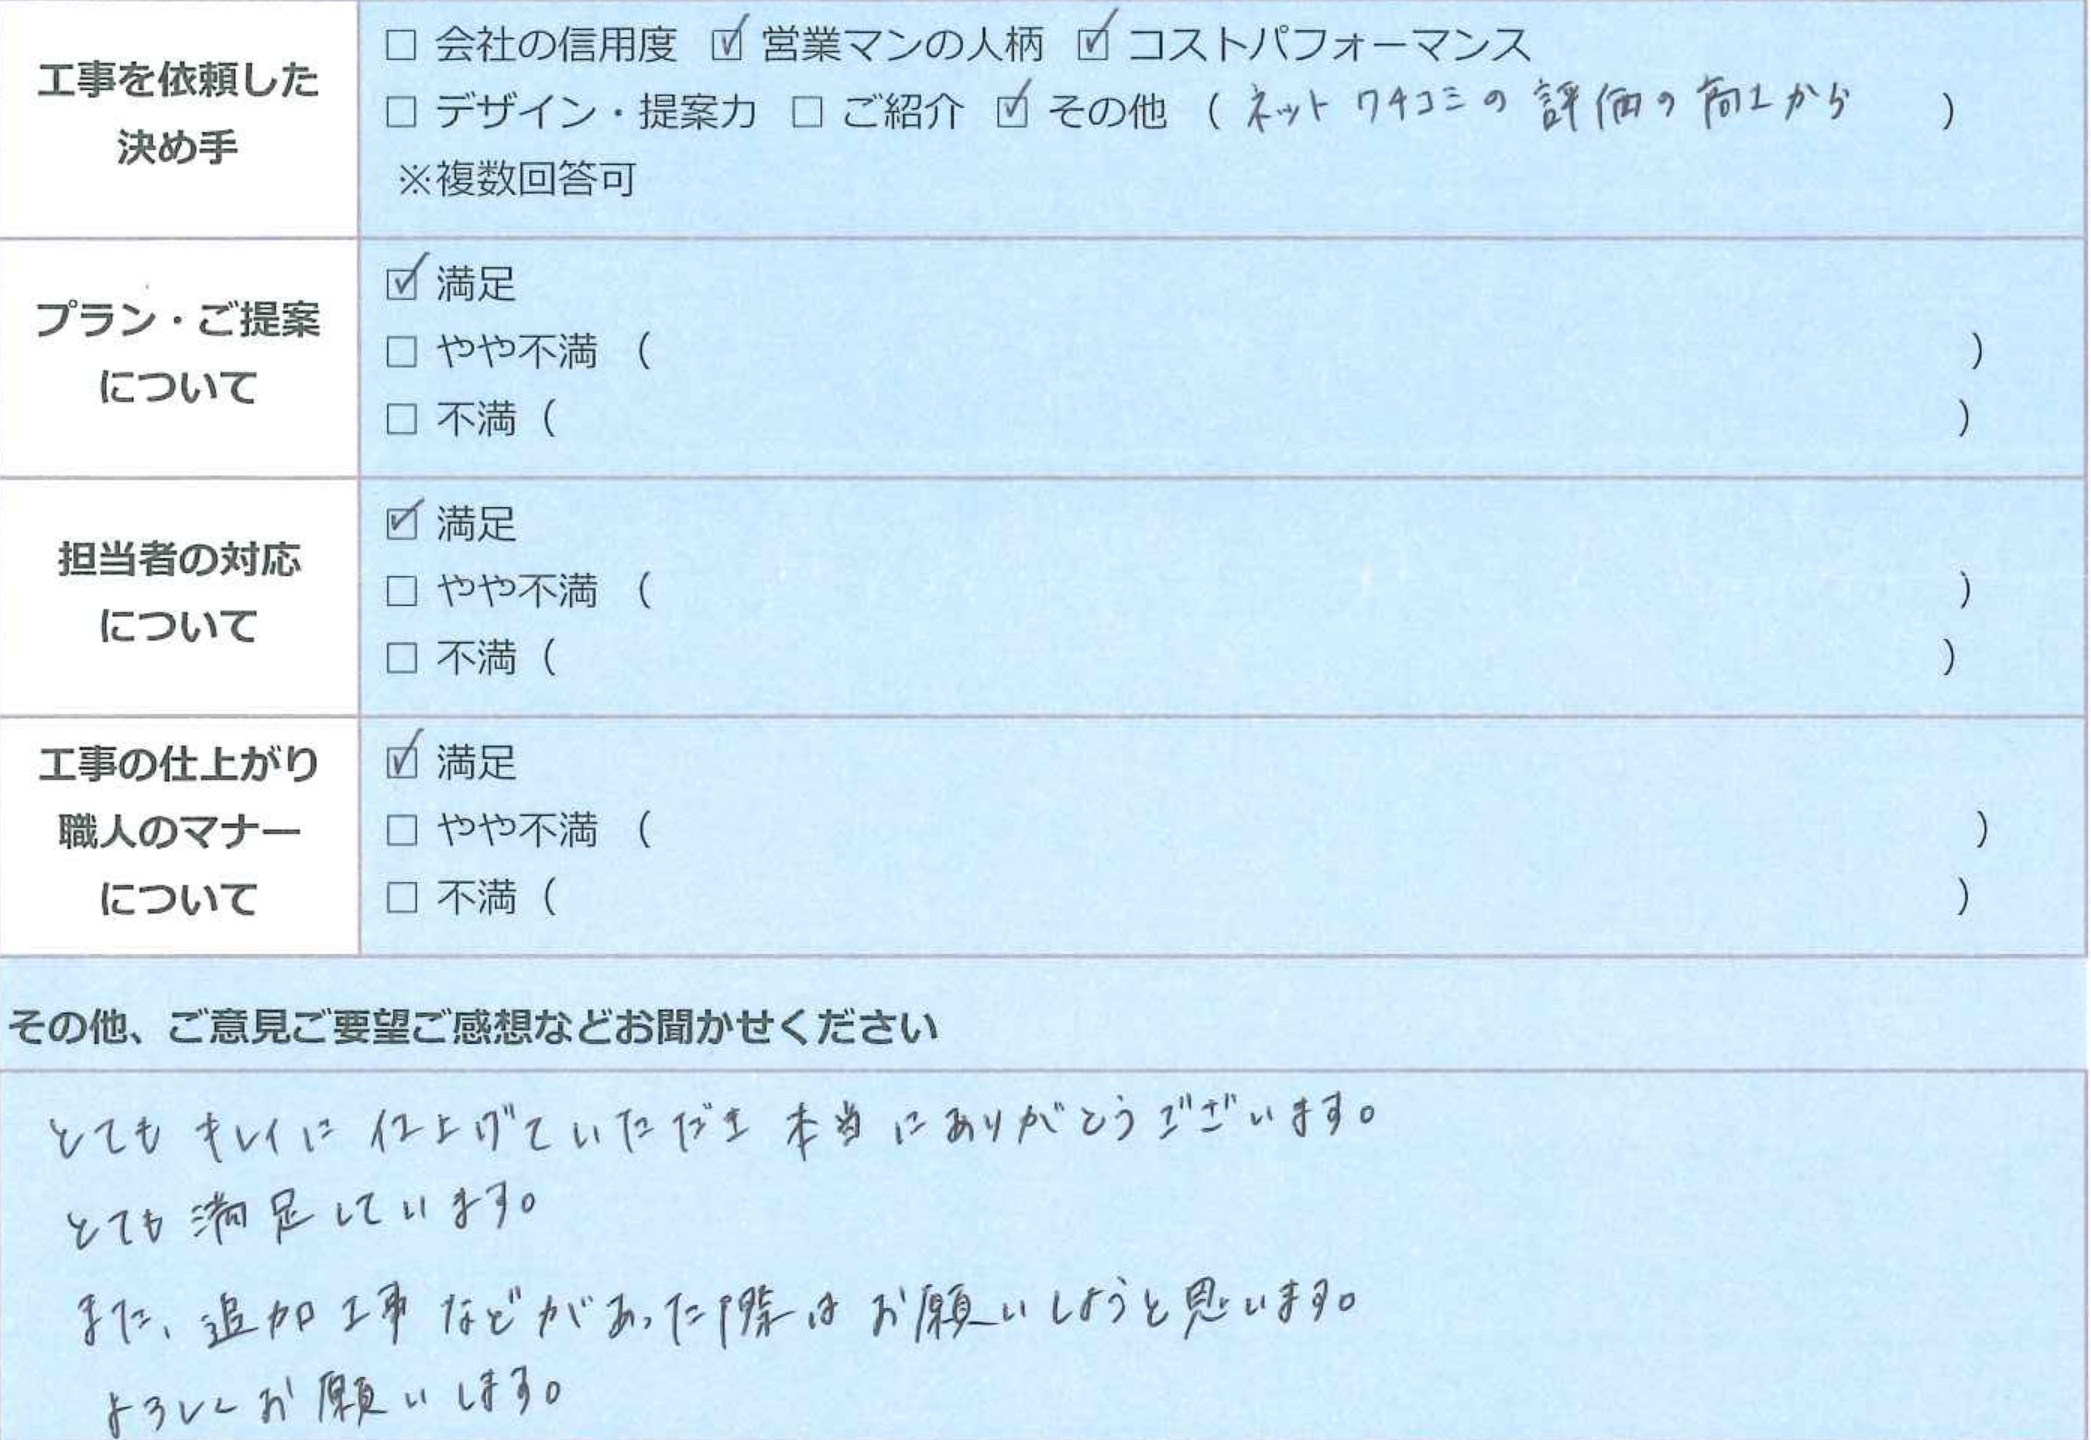 工事を依頼した
決め手
□ 会社の信用度 ☑ 営業マンの人柄 ☑ コストパフォーマンス
□ デザイン・提案力 □ ご紹介 ☑ その他 (ネットクチコミの評価の高さから)
※複数回答可
プラン・ご提案
について
☑ 満足
□ やや不満 ( )
□ 不満 ( )
担当者の対応
について
☑ 満足
□ やや不満 ( )
□ 不満 ( )
工事の仕上がり
職人のマナー
について
☑ 満足
□ やや不満 ( )
□ 不満 ( )
その他、ご意見ご要望ご感想などお聞かせください
とてもキレイに仕上げていただき本当にありがとうございます。
とても満足しています。
また、追加工事などがあった際はお願いしようと思います。
よろしくお願いします。